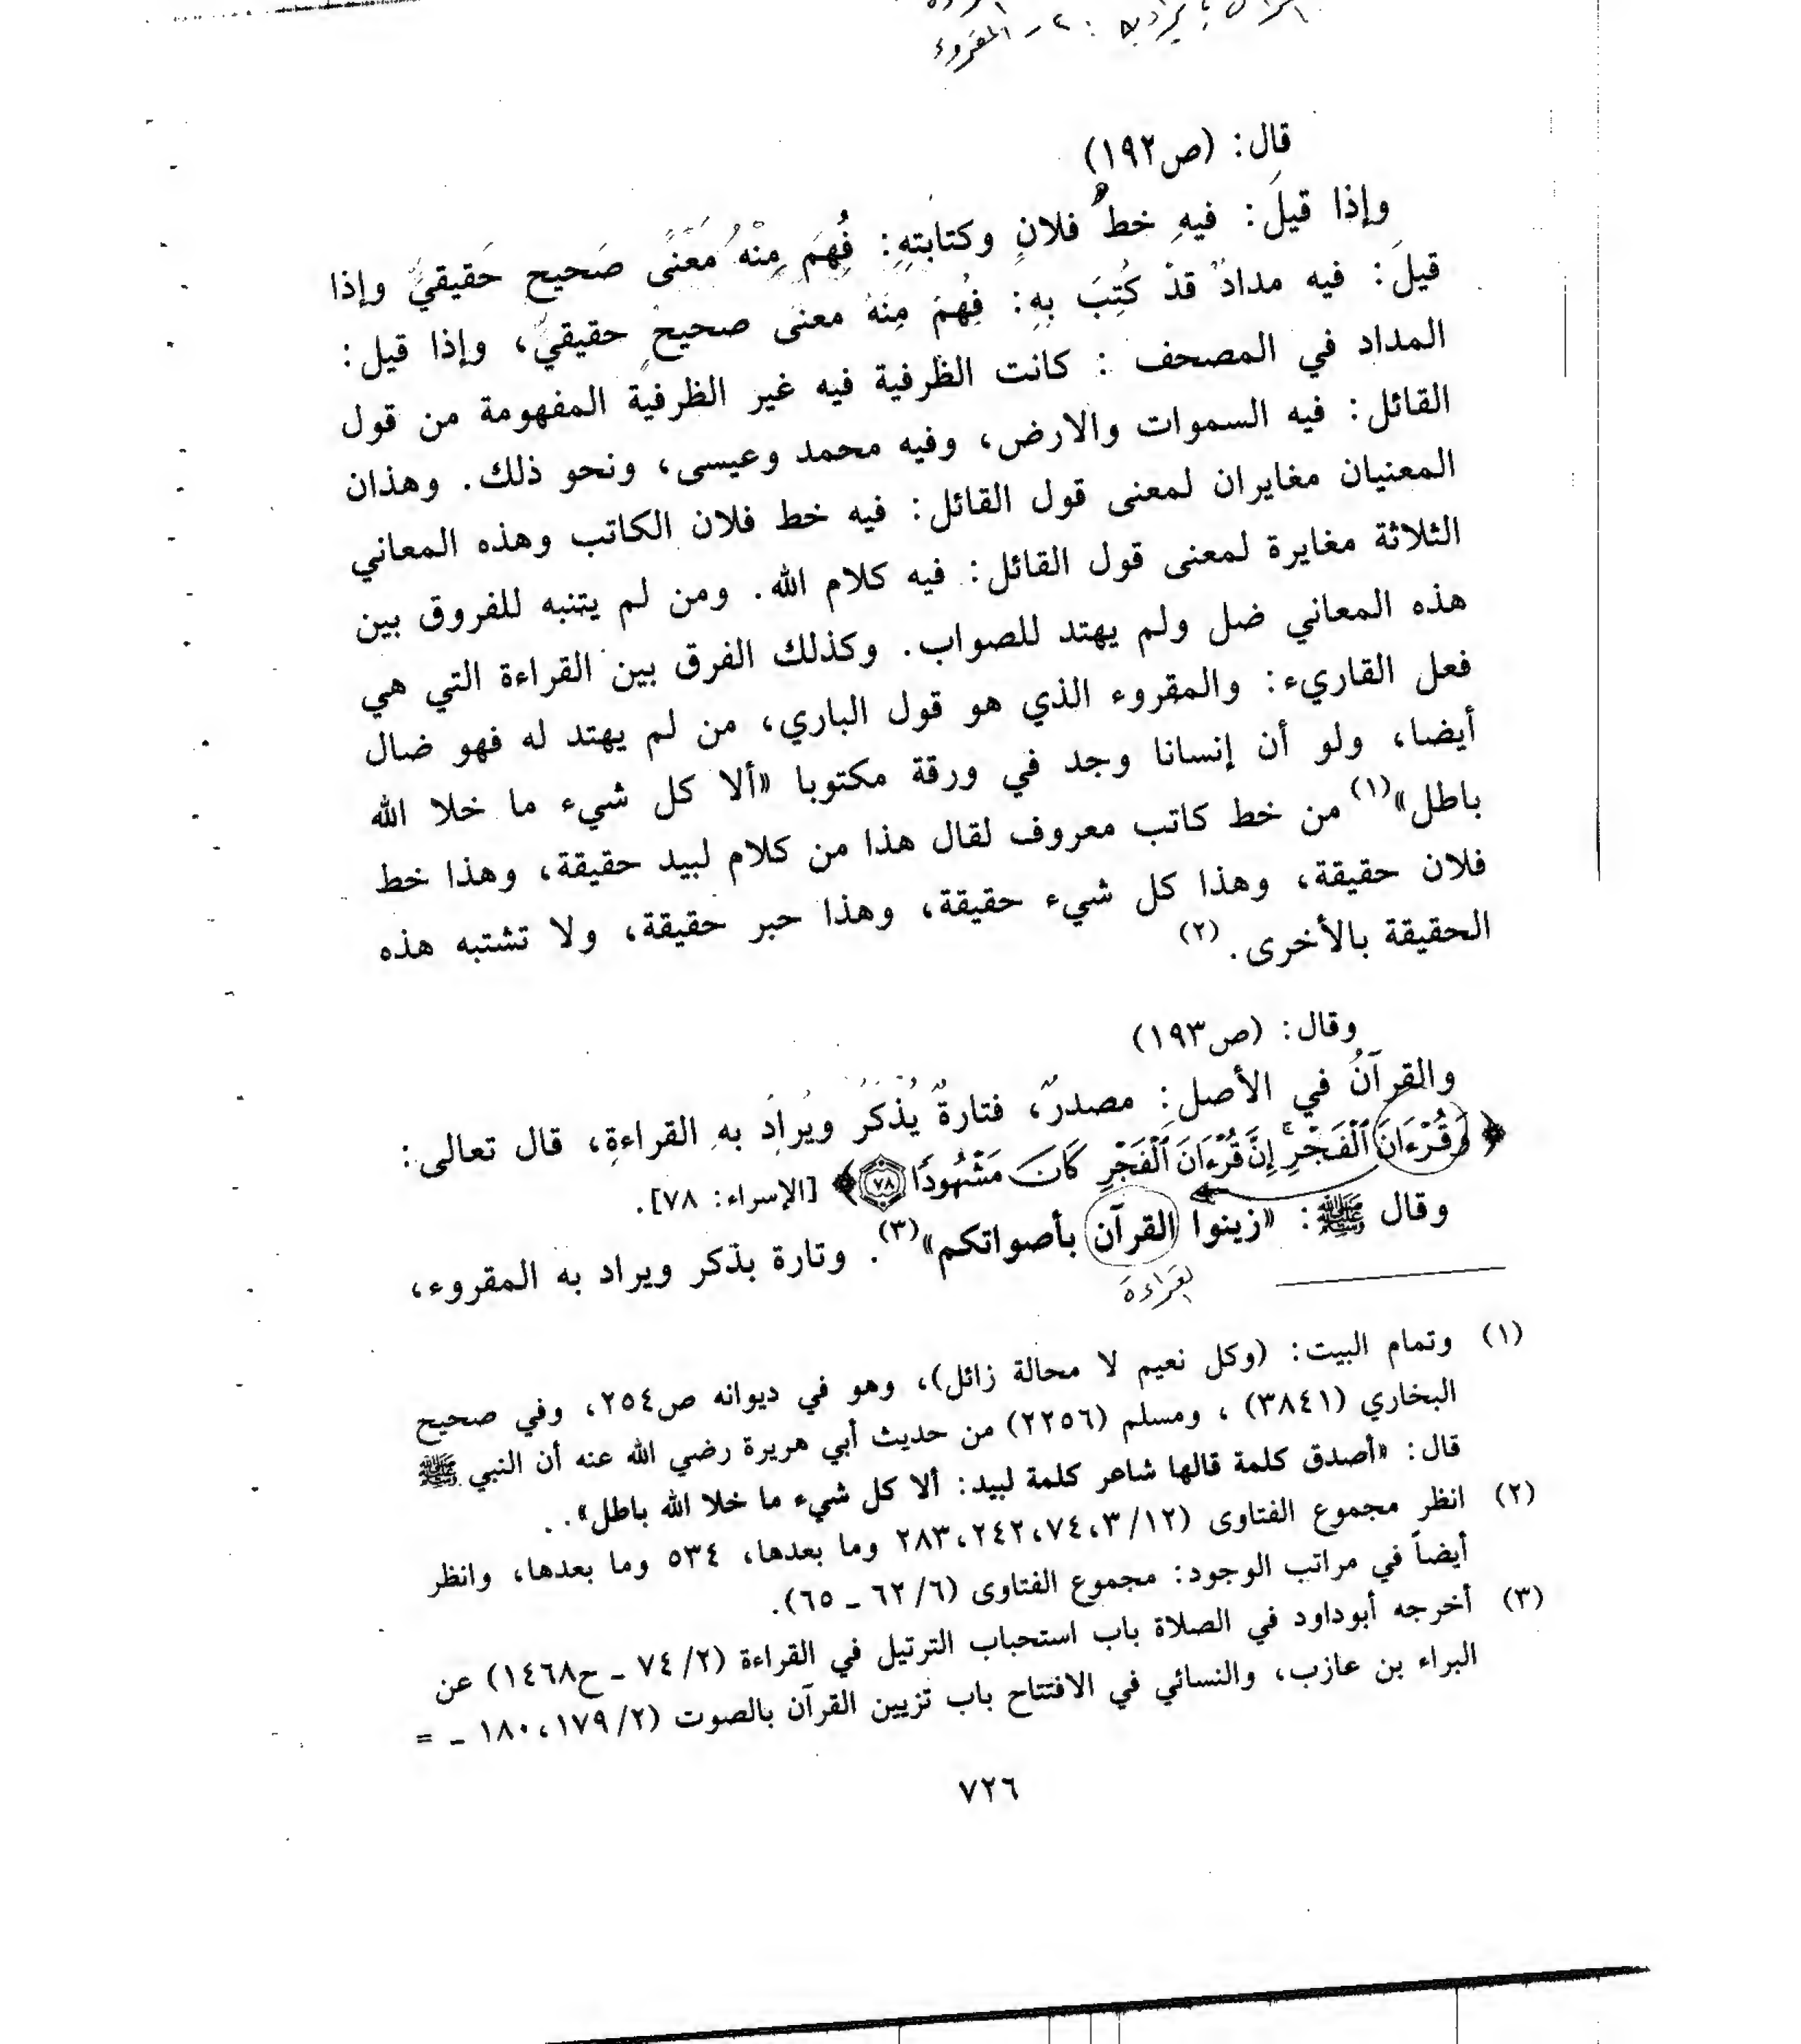 المقروء - ٢ : يراد به
قال: (ص١٩٢)
وإذا قيلَ: فيهِ خطُ فلانٍ وكتابتهِ: فُهِمَ مِنْهُ مَعْنًى صَحيح حَقيقيٌ وإذا
قيلَ: فيه مدادٌ قدْ كُتِبَ بِهِ: فُهِمَ مِنهُ معنى صحيحٍ حقيقيٌ، وإذا قيل:
المداد في المصحف : كانت الظرفية فيه غير الظرفية المفهومة من قول
القائل: فيه السموات والارض، وفيه محمد وعيسى، ونحو ذلك. وهذان
المعنيان مغايران لمعنى قول القائل: فيه خط فلان الكاتب وهذه المعاني
الثلاثة مغايرة لمعنى قول القائل: فيه كلام الله. ومن لم يتنبه للفروق بين
هذه المعاني ضل ولم يهتد للصواب. وكذلك الفرق بين القراءة التي هي
فعل القاريء: والمقروء الذي هو قول الباري، من لم يهتد له فهو ضال
أيضا، ولو أن إنسانا وجد في ورقة مكتوبا «ألا كل شيء ما خلا الله
باطل»(١) من خط كاتب معروف لقال هذا من كلام لبيد حقيقة، وهذا خط
فلان حقيقة، وهذا كل شيء حقيقة، وهذا حبر حقيقة، ولا تشتبه هذه
الحقيقة بالأخرى.(٢)
وقال: (ص١٩٣)
والقرآنُ في الأصلِ: مصدرٌ، فتارةً يُذْكَرُ ويُرادِ بهِ القراءةِ، قال تعالى:
﴿ وَقُرْءَانَ ٱلْفَجْرِ إِنَّ قُرْءَانَ ٱلْفَجْرِ كَانَ مَشْهُودًا ٧٨ ﴾ [الإسراء: ٧٨].
وقال ﷺ: «زينوا القرآن بأصواتكم»(٣). وتارة بذكر ويراد به المقروء،
القراءة
(١) وتمام البيت: (وكل نعيم لا محالة زائل)، وهو في ديوانه ص٢٥٤، وفي صحيح
البخاري (٣٨٤١) ، ومسلم (٢٢٥٦) من حديث أبي هريرة رضي الله عنه أن النبي ﷺ
قال: «أصدق كلمة قالها شاعر كلمة لبيد: ألا كل شيء ما خلا الله باطل».
(٢) انظر مجموع الفتاوى (٣/١٢، ٧٤، ٢٤٢، ٢٨٣ وما بعدها، ٥٣٤ وما بعدها، وانظر
أيضاً في مراتب الوجود: مجموع الفتاوى (٦/ ٦٢ ـ ٦٥).
(٣) أخرجه أبوداود في الصلاة باب استحباب الترتيل في القراءة (٢/ ٧٤ ـ ح١٤٦٨) عن
البراء بن عازب، والنسائي في الافتتاح باب تزيين القرآن بالصوت (٢/ ١٧٩، ١٨٠ ـ =
٧٢٦